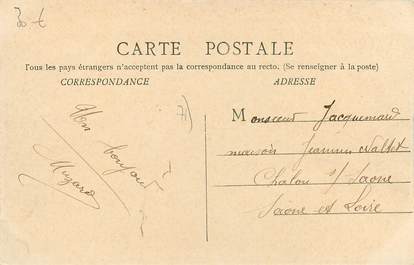 30 €
CARTE POSTALE
Tous les pays étrangers n'acceptent pas la correspondance au recto. (Se renseigner à la poste)
CORRESPONDANCE
ADRESSE
71
Mon bonjour
Monsieur Jacquemard
maison Jeannin
Chalon s/ Saone
Saône et Loire